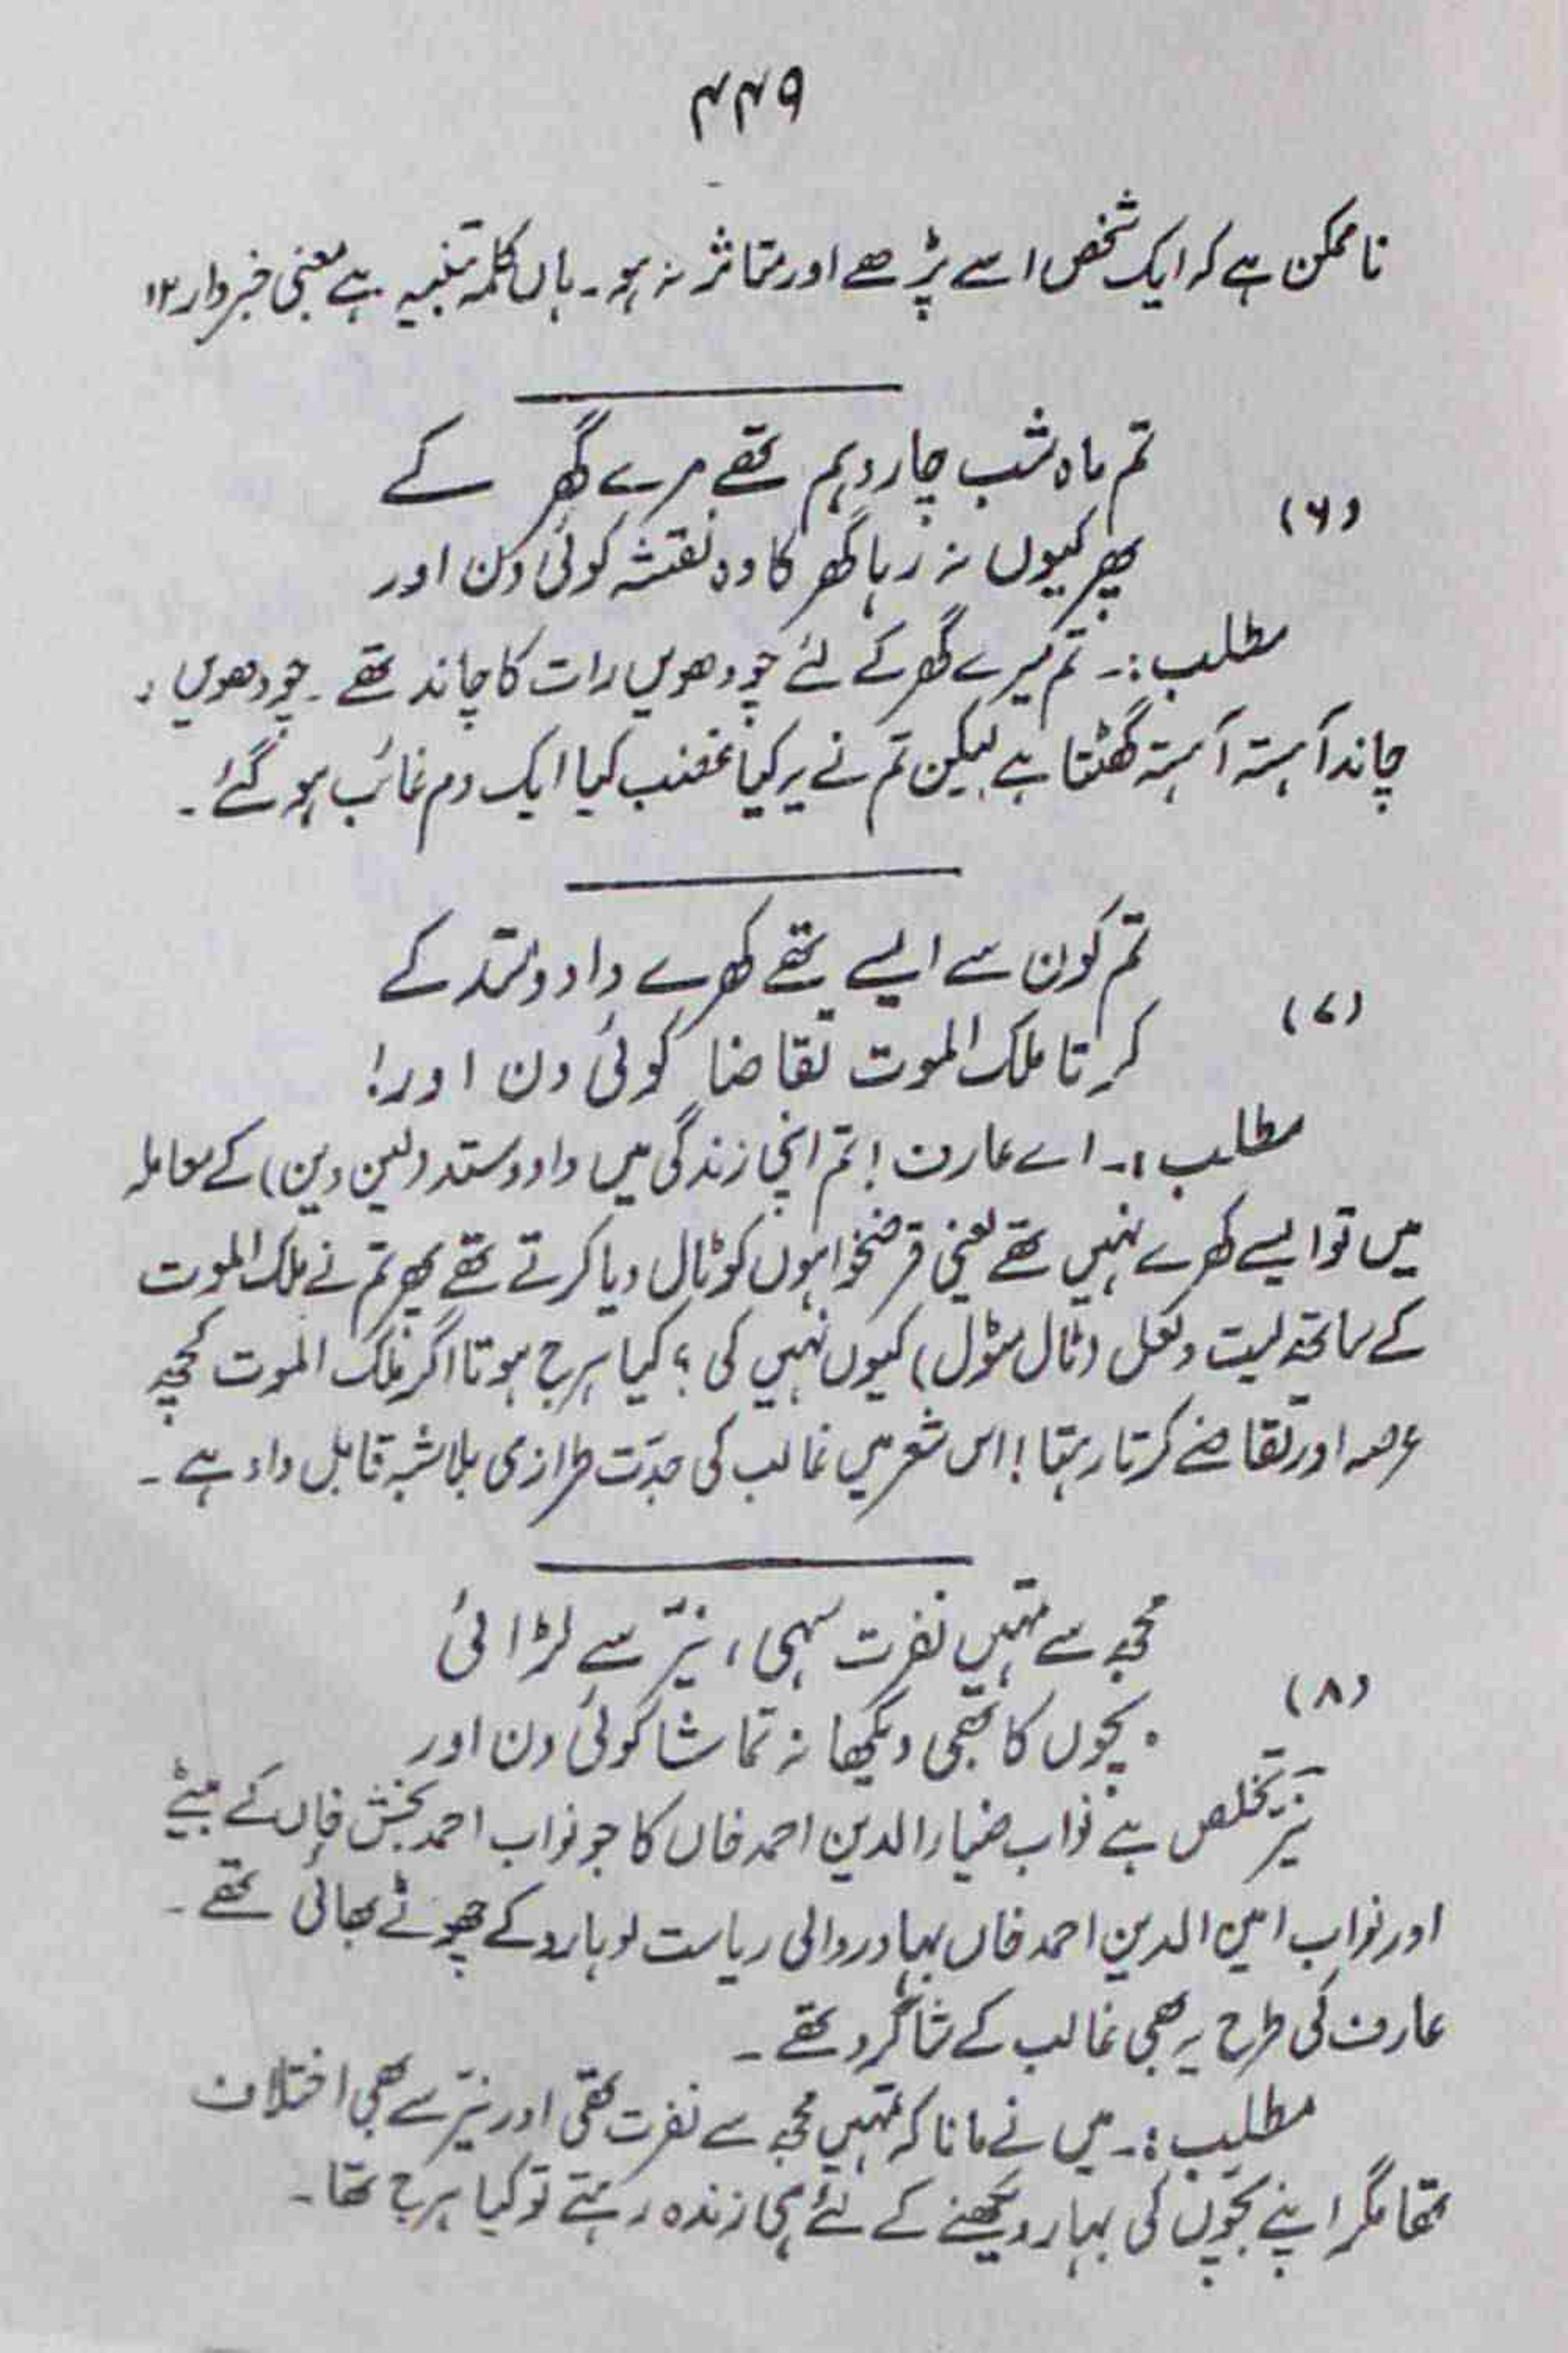 ۴۴۹
ناممکن ہے کہ ایک شخص اسے پڑھے اور متاثر نہ ہو۔ ہاں کلمہ تنبیہ ہے معنی خبردار ۱۲
تم ماہ شب چار دہم تھے مرے گھر کے
(۶)
پھر کیوں نہ رہا گھر کا وہ نقشہ کوئی دن اور
مطلب:۔ تم میرے گھر کے لئے چودھویں رات کا چاند تھے۔ چودھویں کا
چاند آہستہ آہستہ گھٹتا ہے لیکن تم نے یہ کیا غضب کیا ایک دم غائب ہو گئے۔
تم کون سے ایسے تھے کھرے داد و ستد کے
(۷)
کرتا ملک الموت تقاضا کوئی دن اور!
مطلب:۔ اے عارف! تم اپنی زندگی میں داد و ستد (لین دین) کے معاملہ
میں تو ایسے کھرے نہیں تھے یعنی قرضخواہوں کو ٹال دیا کرتے تھے پھر تم نے ملک الموت
کے ساتھ لیت و لعل (ٹال مٹول) کیوں نہیں کی؟ کیا ہرج ہوتا اگر ملک الموت کچھ
عرصہ اور تقاضے کرتا رہتا! اس شعر میں غالب کی جدّت طرازی بلاشبہ قابل داد ہے۔
مجھ سے تمہیں نفرت سہی، نیّر سے لڑائی
(۸)
بچوں کا بھی دیکھا نہ تماشا کوئی دن اور
نیّر تخلص ہے نواب ضیاء الدین احمد خاں کا جو نواب احمد بخش خاں کے بیٹے
اور نواب امین الدین احمد خاں بہادر والی ریاست لوہارو کے چھوٹے بھائی تھے۔
عارف کی طرح یہ بھی غالب کے شاگرد تھے۔
مطلب:۔ میں نے مانا کہ تمہیں مجھ سے نفرت تھی اور نیّر سے بھی اختلاف
تھا مگر اپنے بچّوں کی بہار دیکھنے کے لئے ہی زندہ رہتے تو کیا ہرج تھا۔